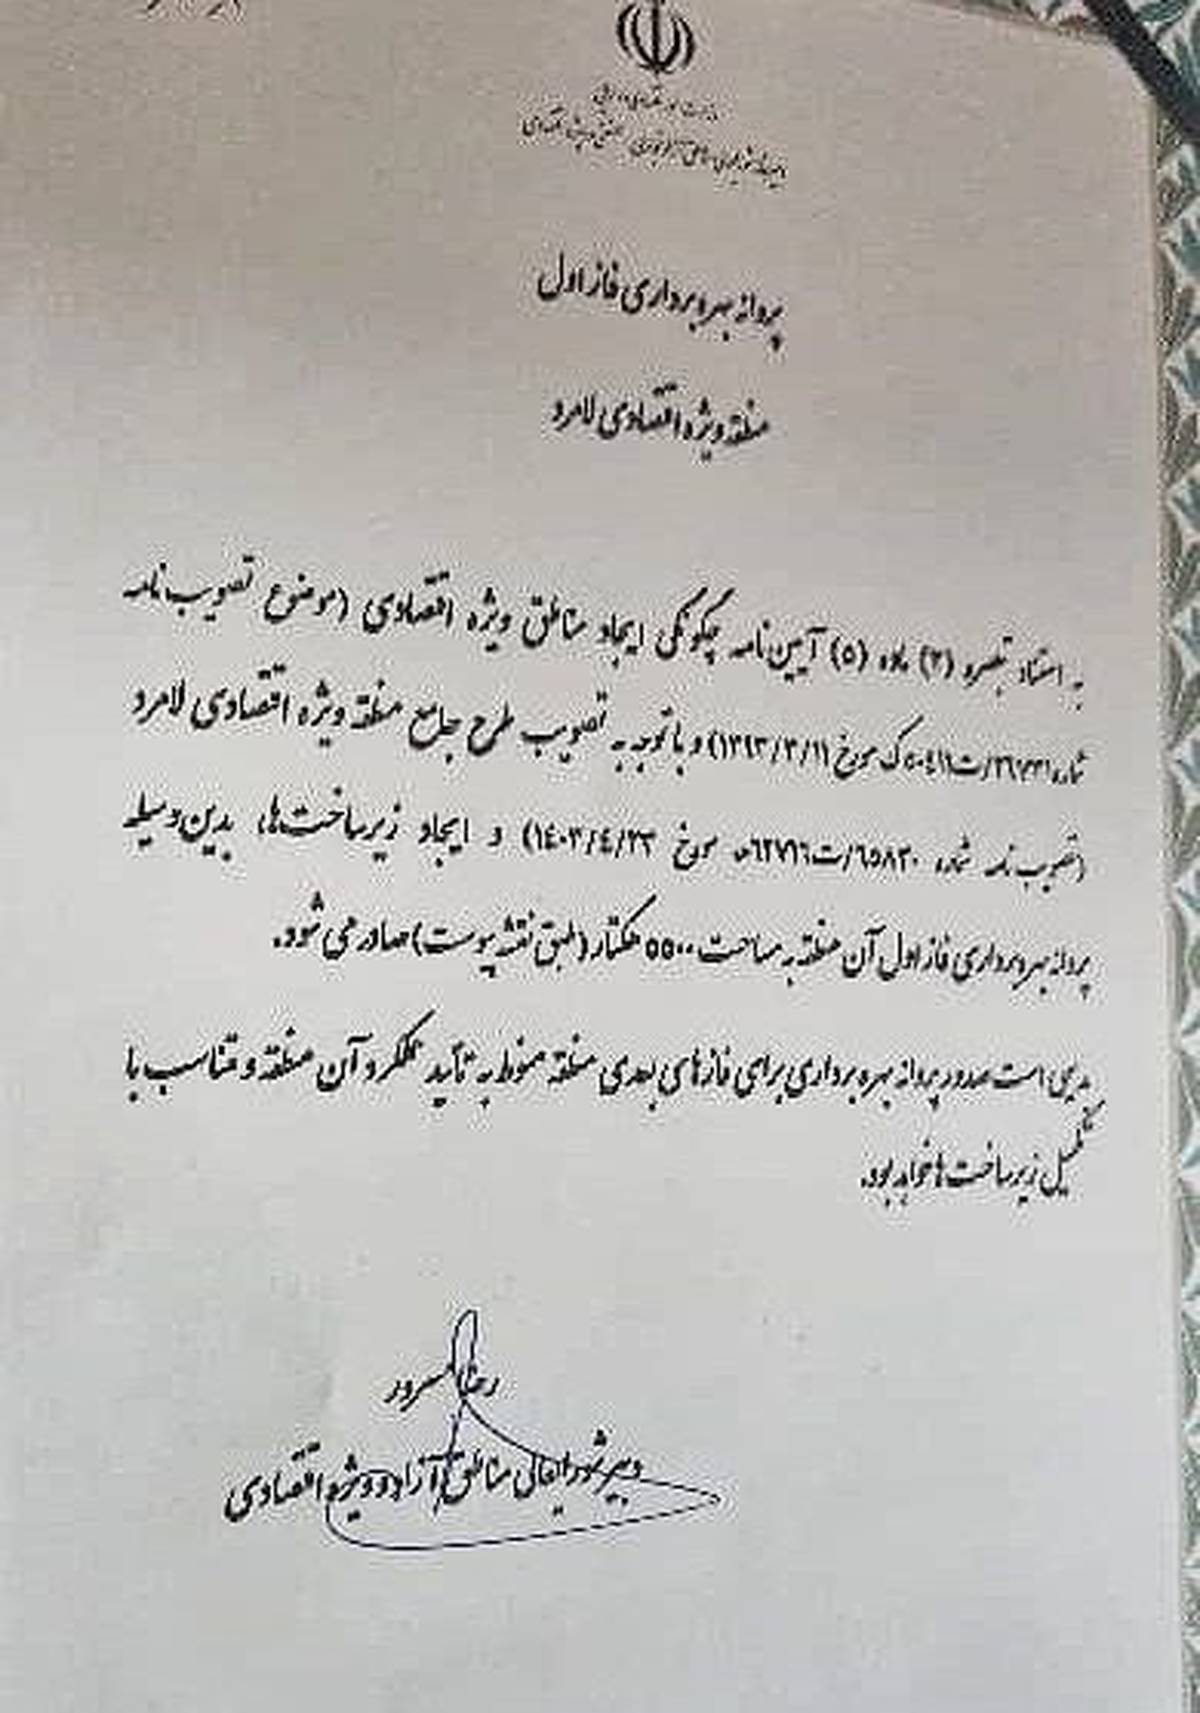 وزارت امور اقتصادی و دارایی
دبیرخانه شورایعالی مناطق آزاد تجاری صنعتی و ویژه اقتصادی
پروانه بهره‌برداری فاز اول
منطقه ویژه اقتصادی لامرد
به استناد تبصره (۲) ماده (۵) آیین‌نامه چگونگی ایجاد مناطق ویژه اقتصادی (موضوع تصویب‌نامه
شماره ت۵۰۴۱۱ک مورخ ۱۳۹۳/۳/۱۱) و با توجه به تصویب طرح جامع منطقه ویژه اقتصادی لامرد
(تصویب نامه شماره ۶۵۸۳۰/ت۶۲۷۱۶هـ مورخ ۱۴۰۳/۴/۲۳) و ایجاد زیرساخت‌ها، بدین‌وسیله
پروانه بهره‌برداری فاز اول آن منطقه به مساحت ۵۵۰۰ هکتار (طبق نقشه پیوست) صادر می شود.
بدیهی است صدور پروانه بهره برداری برای فازهای بعدی منطقه منوط به تأیید عملکرد آن منطقه و متناسب با
تکمیل زیرساخت ها خواهد بود.
رضا مسرور
دبیر شورایعالی مناطق آزاد و ویژه اقتصادی